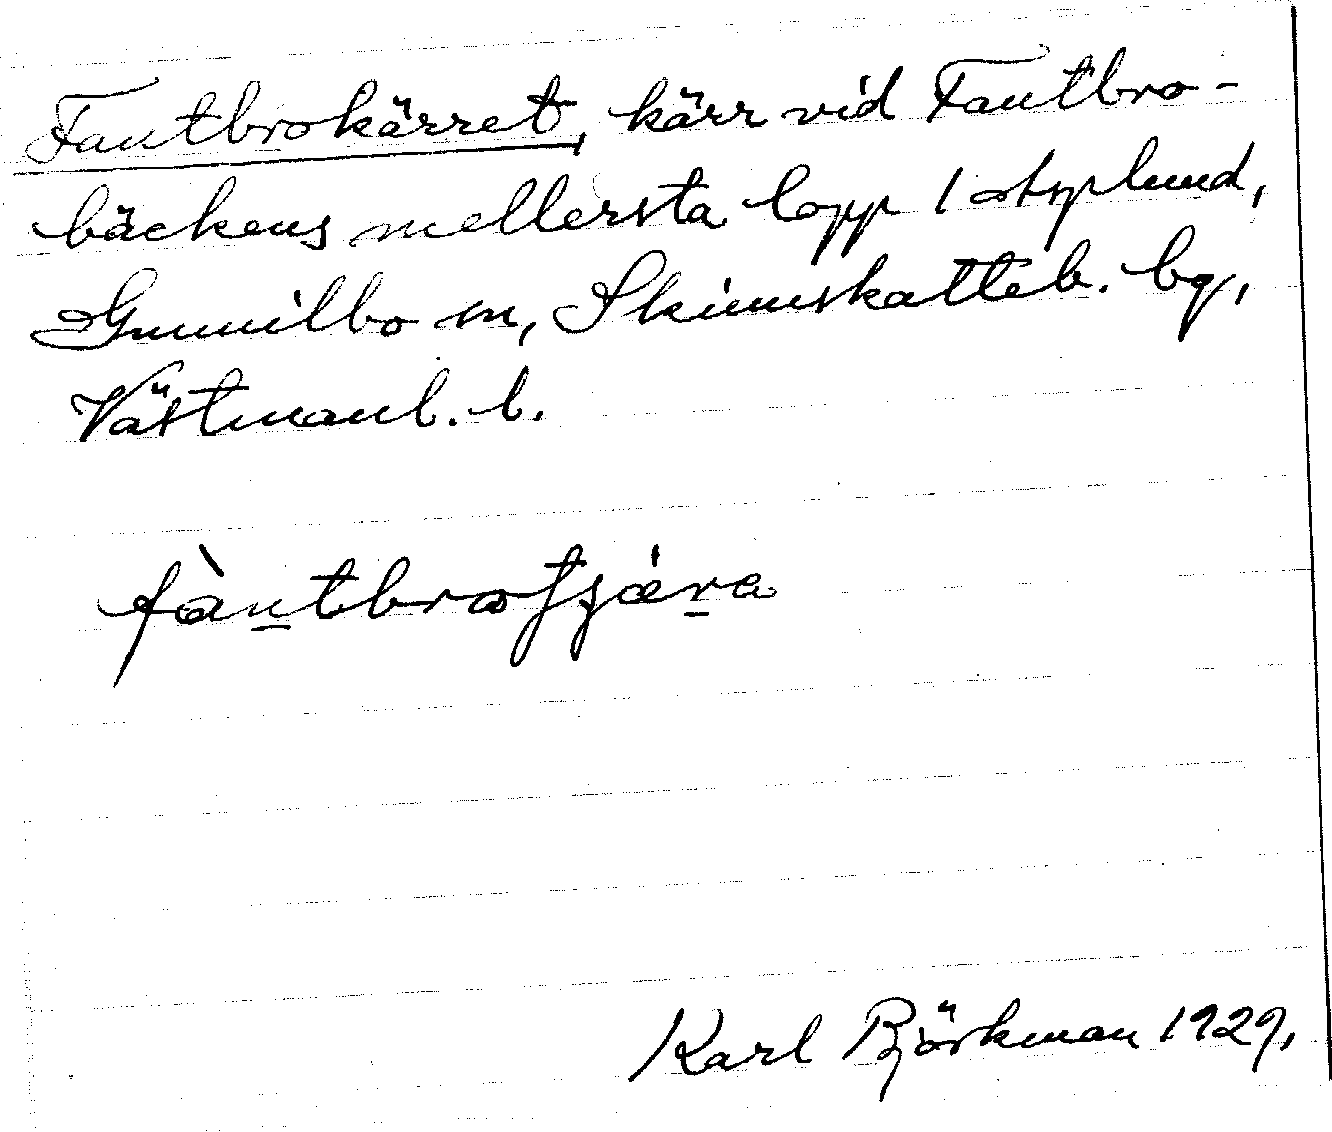 Fantbrokärret, kärr vid Fantbro-
bäckens mellersta lopp 1 styplund,
Gunnilbo sn, Skinnskatteb. bg,
Västmanl. l.
fàntbroʃʃǽra
Karl Björkman 1929,